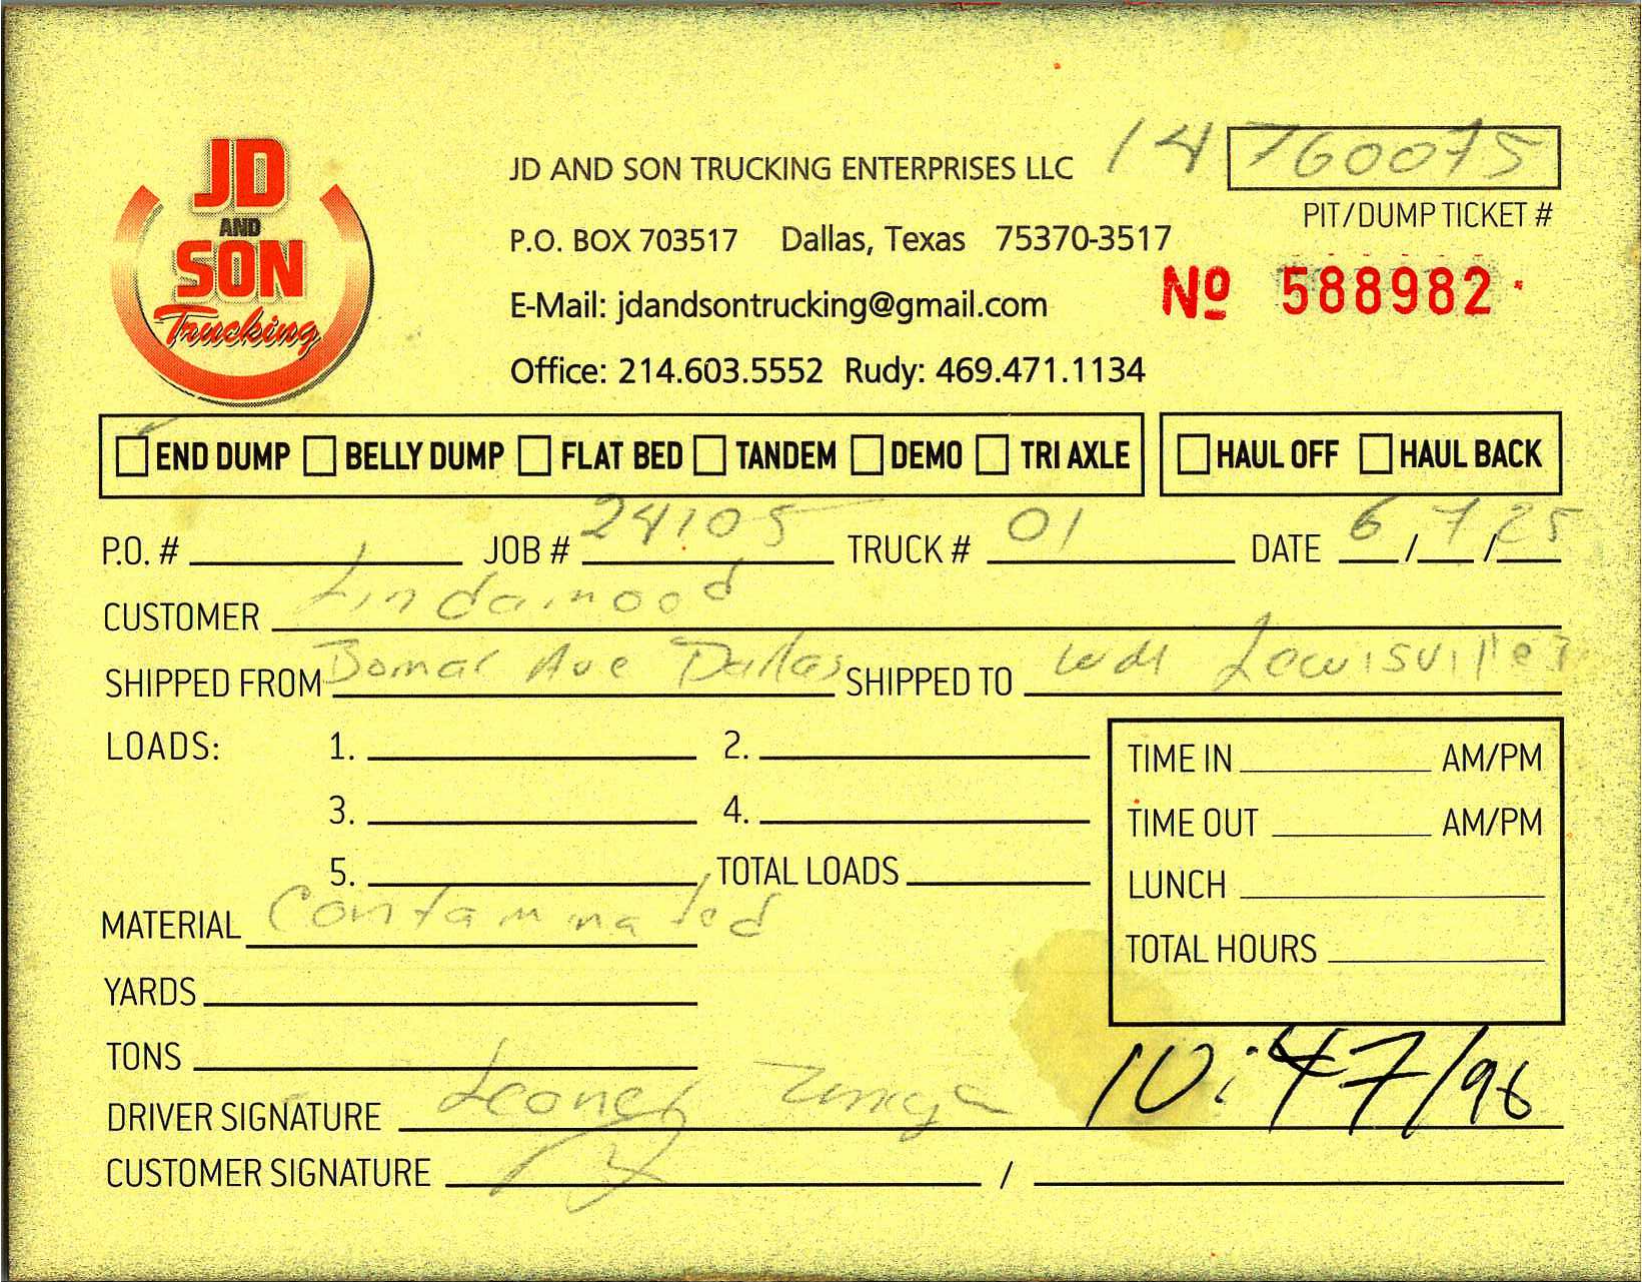 JD
AND
SON
Trucking
JD AND SON TRUCKING ENTERPRISES LLC
14760075
PIT/DUMP TICKET #
P.O. BOX 703517 Dallas, Texas 75370-3517
№ 588982
E-Mail: jdandsontrucking@gmail.com
Office: 214.603.5552 Rudy: 469.471.1134
END DUMP BELLY DUMP FLAT BED TANDEM DEMO TRI AXLE HAUL OFF HAUL BACK
P.O. # JOB # 24105 TRUCK # 01 DATE 6/7/25
CUSTOMER Lindamood
SHIPPED FROM Bomar Ave Dallas SHIPPED TO Lewisville
LOADS: 1. 2.
3. 4.
5. TOTAL LOADS
TIME IN AM/PM
TIME OUT AM/PM
LUNCH
TOTAL HOURS
MATERIAL Contaminated
YARDS
TONS
DRIVER SIGNATURE 10:47/96
CUSTOMER SIGNATURE /